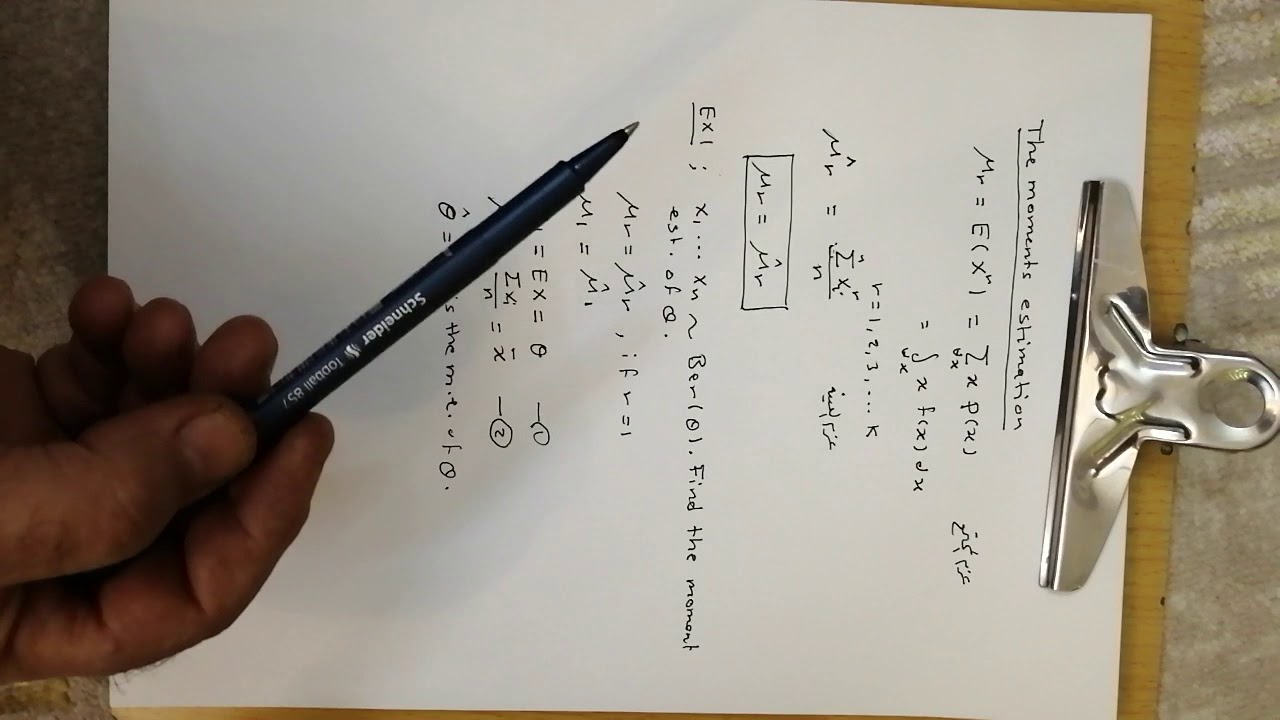 The moments estimation
μr = E(X^r) = Σ∀x x p(x)
= ∫∀x x f(x) dx
r = 1, 2, 3, ... k
μ̂r = Σ^n xi^r / n
μr = μ̂r
Ex1; x1 ... xn ~ Ber(θ). Find the moment
est. of θ.
μr = μ̂r, if r = 1
μ1 = μ̂1
= EX = θ —①
Σxi / n = x̄ —②
θ̂ = is the m.e. of θ.
Schneider Topball 857